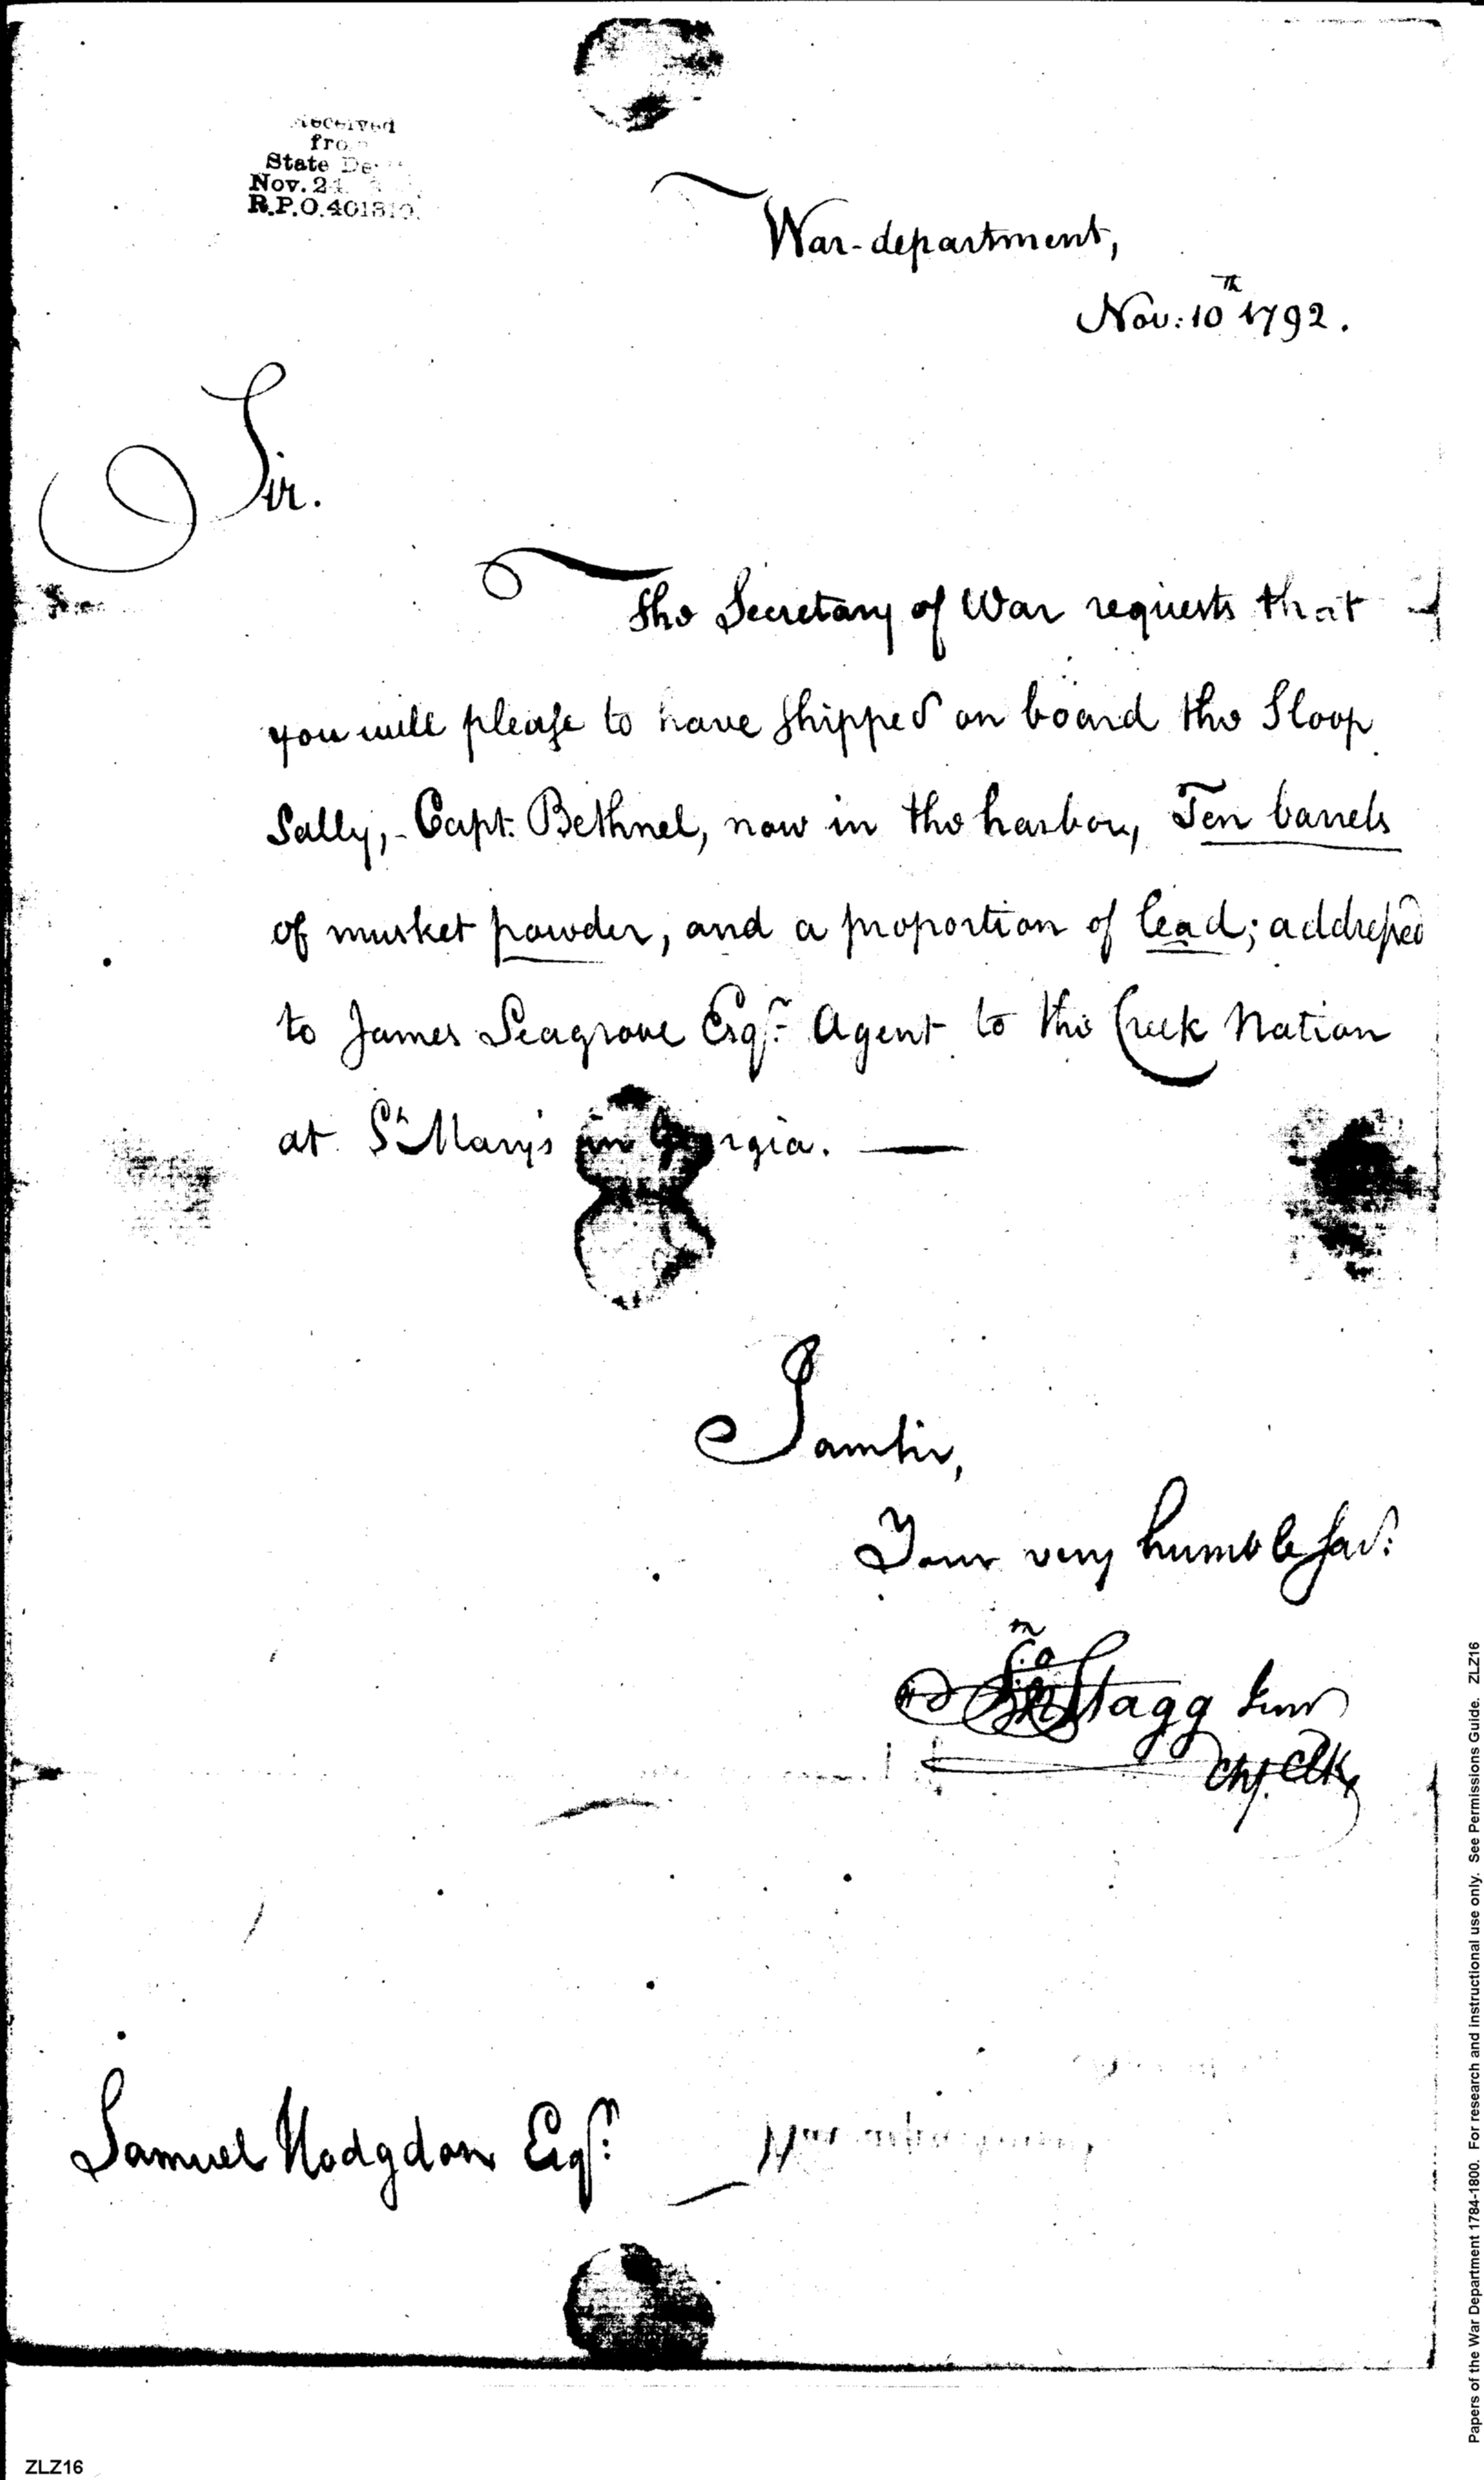 Received
from
State De
Nov. 24
R.P.O. 401310.
War-department,
Nov: 10th 1792.
Sir.
The Secretary of War requests that
you will please to have shipped on board the Sloop
Sally, - Capt: Bethnel, now in the harbour, Ten barrels
of musket powder, and a proportion of lead; addressed
to James Seagrove Esqr. Agent to the Creek Nation
at St. Mary's in Georgia. —
I am sir,
Your very humble Servt:
Jno Stagg Junr
Chf. Clk.
Samuel Hodgdon Esqr:
ZLZ16
Papers of the War Department 1784-1800. For research and instructional use only. See Permissions Guide. ZLZ16